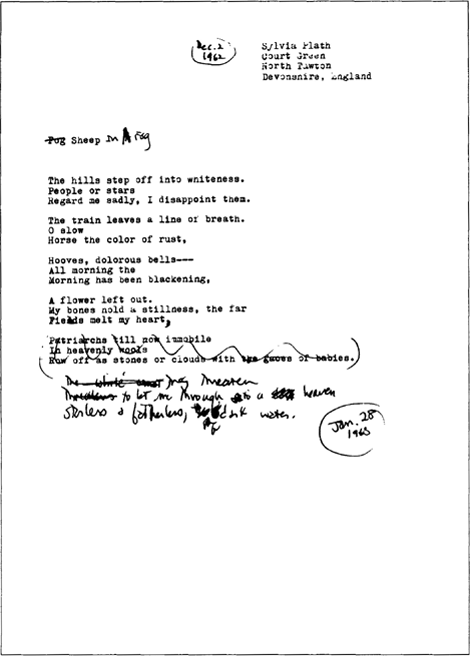 Dec. 2
1962
Sylvia Plath
Court Green
North Tawton
Devonshire, England
Fog Sheep In A Fog
The hills step off into whiteness.
People or stars
Regard me sadly, I disappoint them.
The train leaves a line of breath.
O slow
Horse the color of rust,
Hooves, dolorous bells---
All morning the
Morning has been blackening,
A flower left out.
My bones hold a stillness, the far
Fields melt my heart,
Patriarchs till now immobile
In heavenly wools
Row off as stones or clouds with the faces of babies.
The white They threaten
to let me through to a heaven
Starless & fatherless, a dark water.
Jan. 28
1963